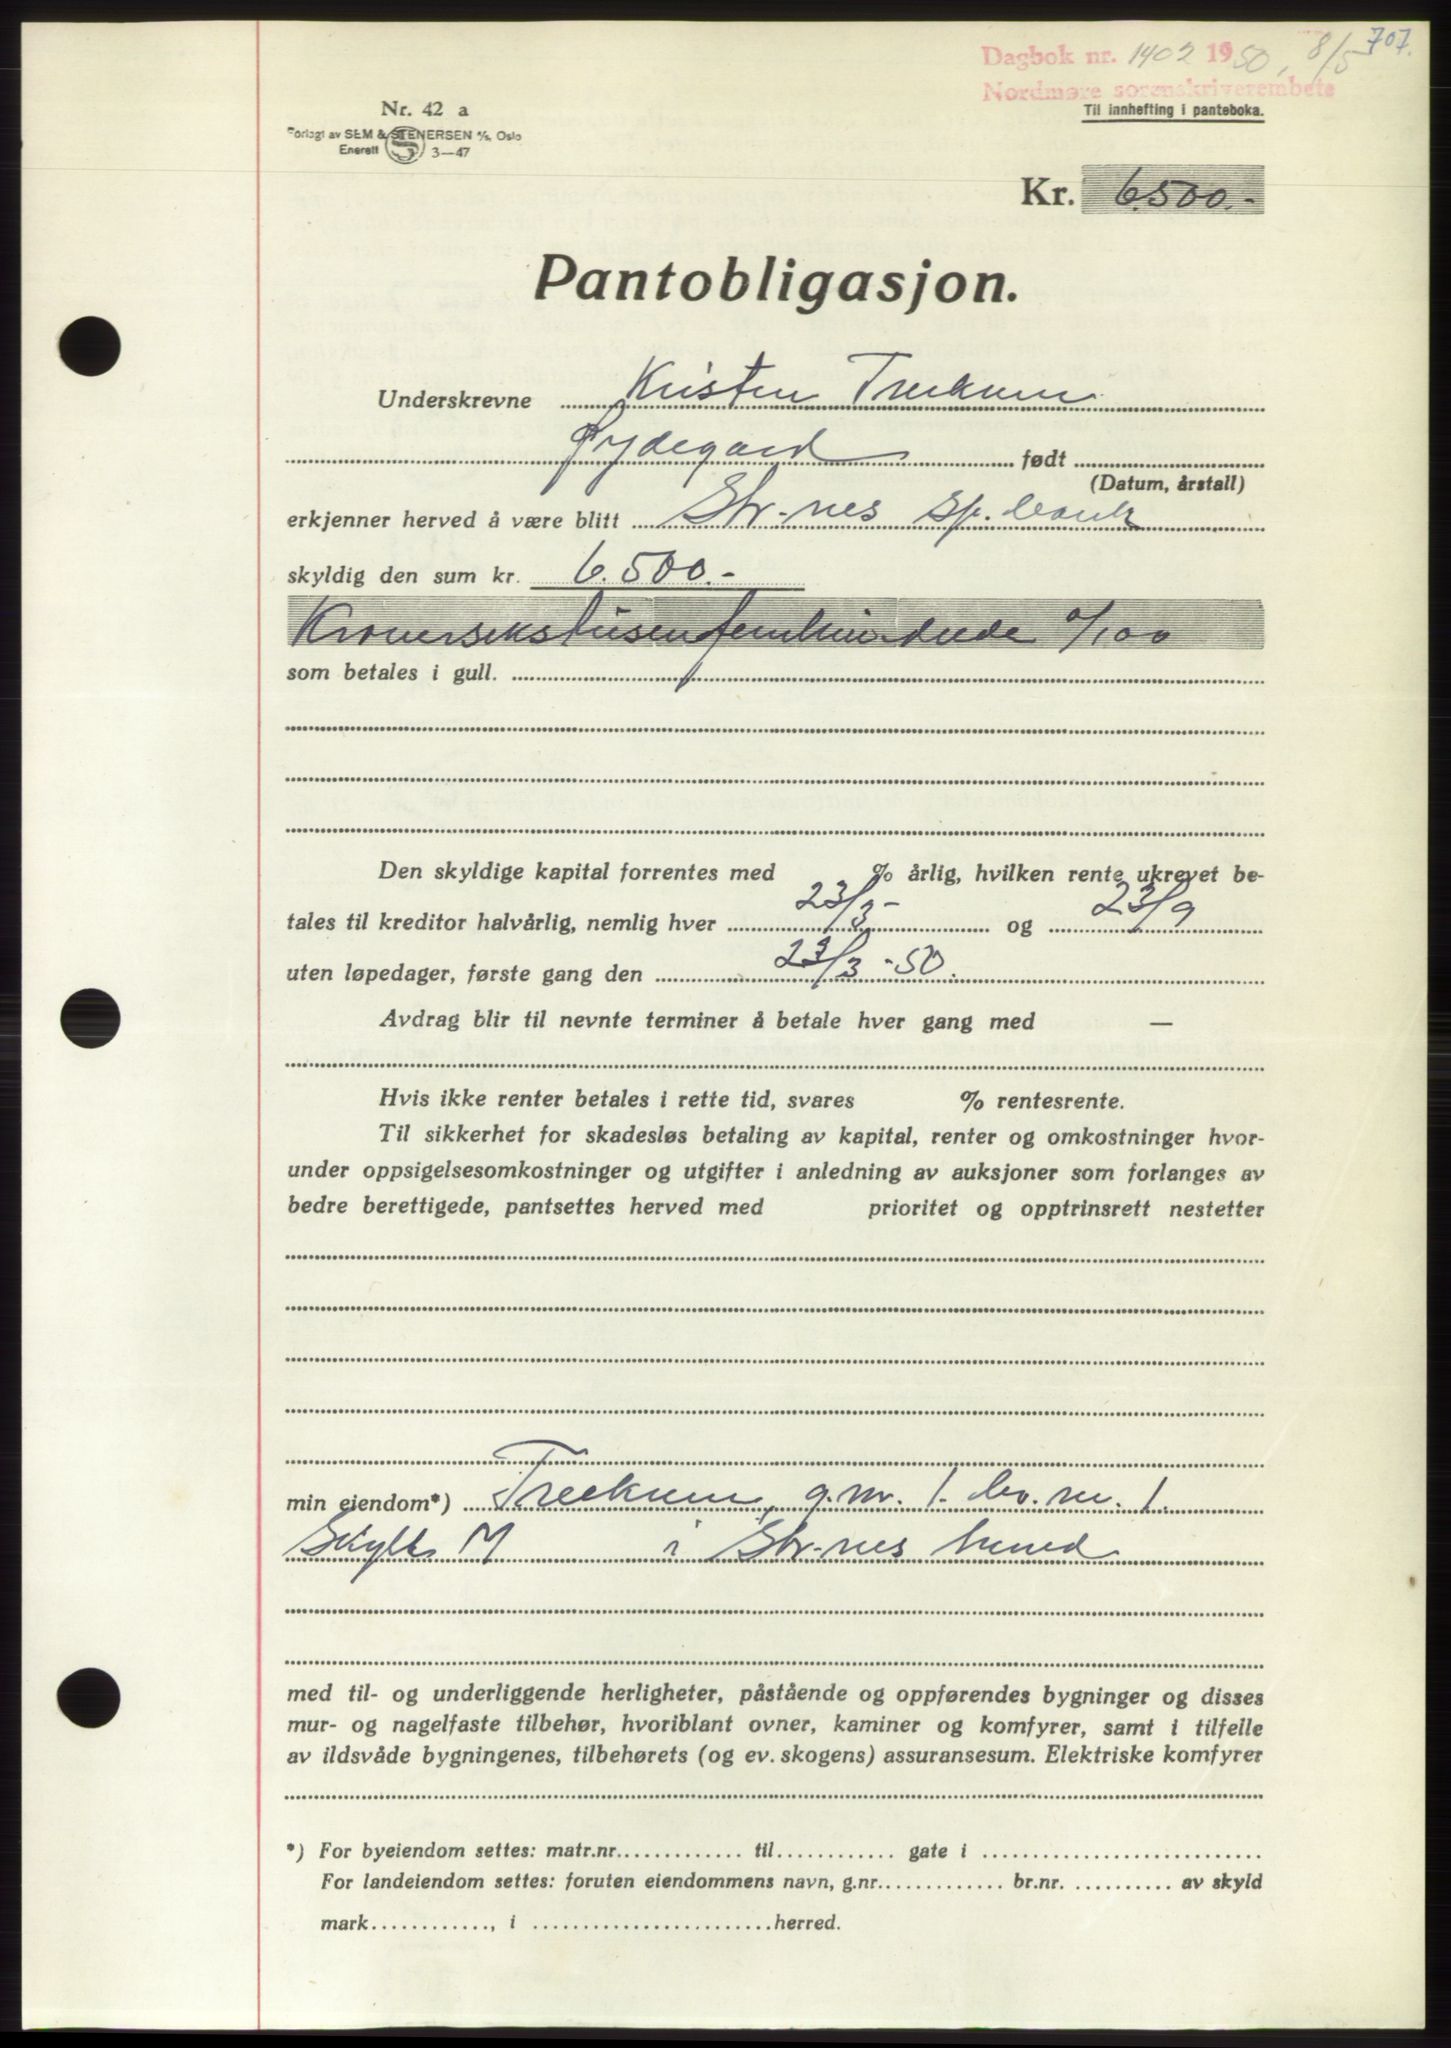 707.
Dagbok nr. 1402 1950, 8/5
Nordmøre sorenskriverembete
Til innhefting i panteboka.
Nr. 42 a
Forlagt av SEM & STENERSEN A/S, Oslo
Enerett S 3—47
Kr. 6.500.-
Pantobligasjon.
Underskrevne Kristen Treekrem
Øydegard født
(Datum, årstall)
erkjenner herved å være blitt Str.-nes Sp.bank
skyldig den sum kr. 6.500.-
Kronersekstusenfemhundrede 0/100
som betales i gull.
Den skyldige kapital forrentes med % årlig, hvilken rente ukrevet be-
tales til kreditor halvårlig, nemlig hver 23/3- og 23/9
uten løpedager, første gang den 23/3-50.
Avdrag blir til nevnte terminer å betale hver gang med —
Hvis ikke renter betales i rette tid, svares % rentesrente.
Til sikkerhet for skadesløs betaling av kapital, renter og omkostninger hvor-
under oppsigelsesomkostninger og utgifter i anledning av auksjoner som forlanges av
bedre berettigede, pantsettes herved med prioritet og opptrinsrett nestetter
min eiendom*) Treekrem, g.nr. 1. br.nr. 1.
Skyld M i Str.-nes herred
med til- og underliggende herligheter, påstående og oppførendes bygninger og disses
mur- og nagelfaste tilbehør, hvoriblant ovner, kaminer og komfyrer, samt i tilfelle
av ildsvåde bygningenes, tilbehørets (og ev. skogens) assuransesum. Elektriske komfyrer
*) For byeiendom settes: matr.nr. til gate i
For landeiendom settes: foruten eiendommens navn, g.nr. br.nr. av skyld
mark, i herred.